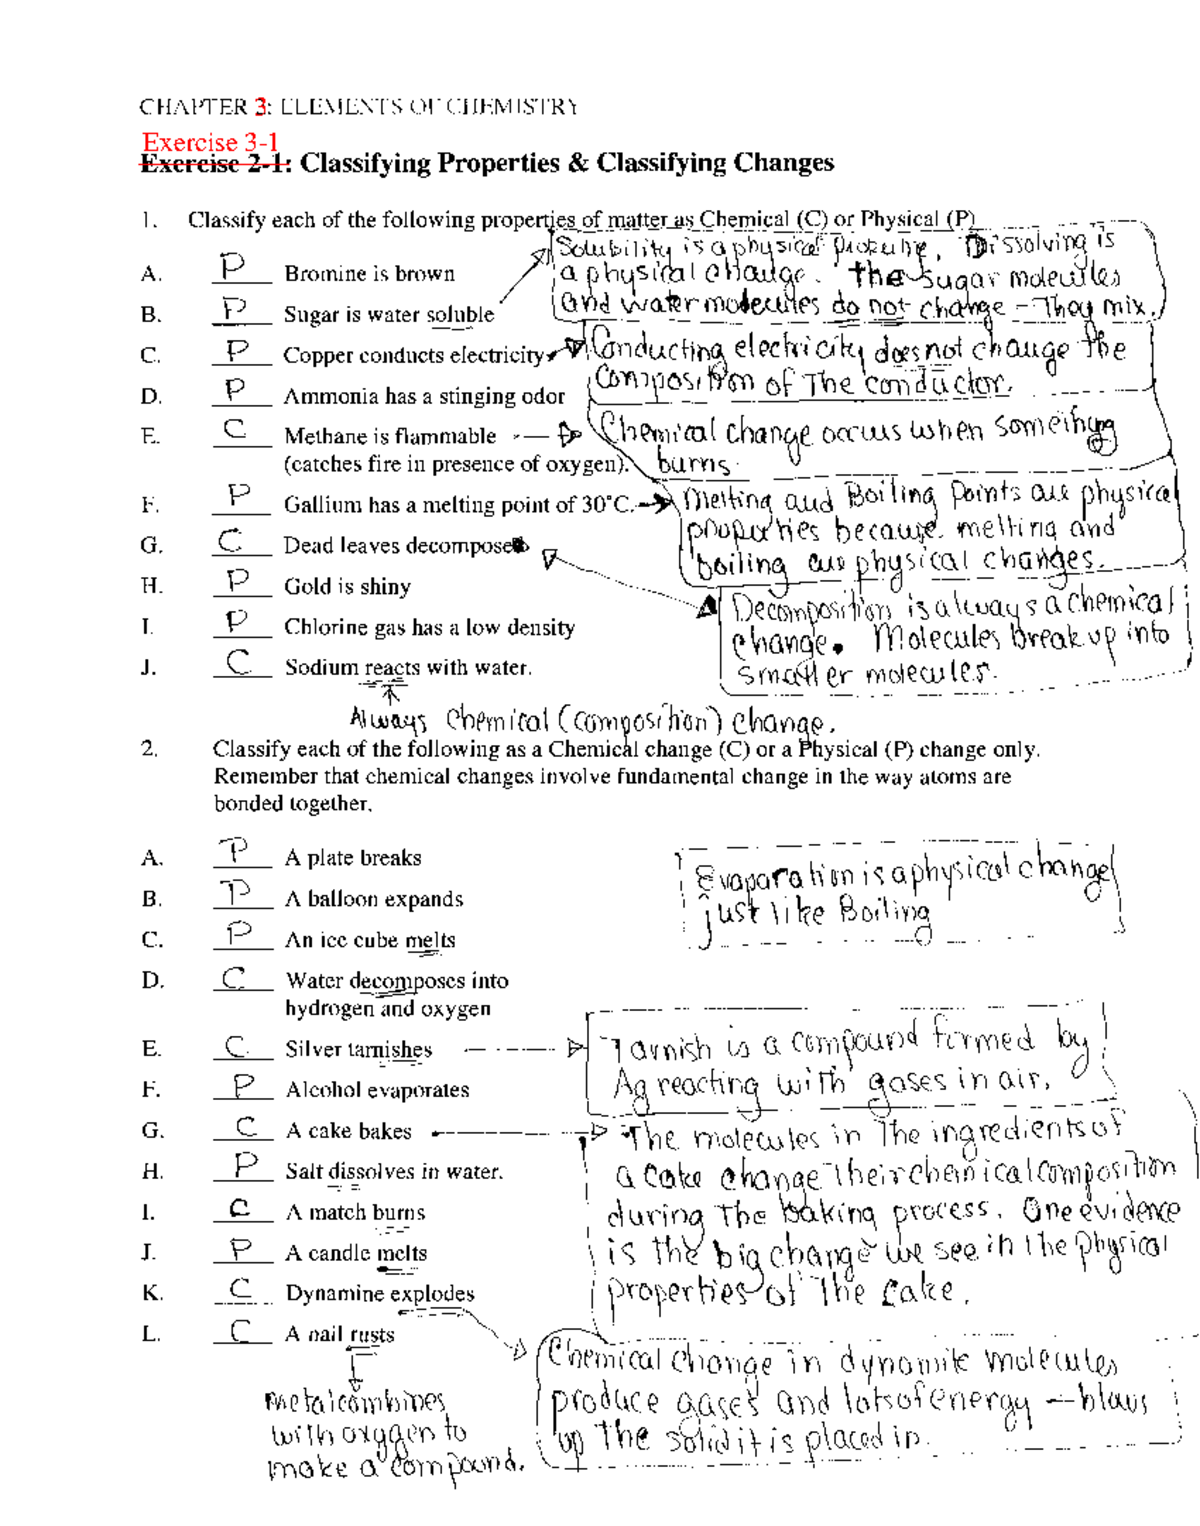 CHAPTER 3: ELEMENTS OF CHEMISTRY
Exercise 3-1
Exercise 2-1: Classifying Properties & Classifying Changes
1. Classify each of the following properties of matter as Chemical (C) or Physical (P)
Solubility is a physical property. Dissolving is
a physical change. the sugar molecules
and water molecules do not change - They mix.
A. P Bromine is brown
B. P Sugar is water soluble
C. P Copper conducts electricity
Conducting electricity does not change the
composition of The conductor.
D. P Ammonia has a stinging odor
E. C Methane is flammable
(catches fire in presence of oxygen).
Chemical change occurs when something
burns.
F. P Gallium has a melting point of 30°C.
Melting and Boiling Points are physical
properties because melting and
boiling are physical changes.
G. C Dead leaves decompose
H. P Gold is shiny
Decomposition is always a chemical
change. Molecules break up into
smaller molecules.
I. P Chlorine gas has a low density
J. C Sodium reacts with water.
Always chemical (composition) change.
2. Classify each of the following as a Chemical change (C) or a Physical (P) change only.
Remember that chemical changes involve fundamental change in the way atoms are
bonded together.
A. P A plate breaks
B. P A balloon expands
Evaparation is a physical change
just like Boiling
C. P An ice cube melts
D. C Water decomposes into
hydrogen and oxygen
E. C Silver tarnishes
Tarnish is a compound formed by
Ag reacting with gases in air.
F. P Alcohol evaporates
G. C A cake bakes
The molecules in The ingredients of
a cake change Their chemical composition
during The baking process. One evidence
is the big change we see in the physical
properties of The cake.
H. P Salt dissolves in water.
I. C A match burns
J. P A candle melts
K. C Dynamine explodes
L. C A nail rusts
Chemical change in dynamite molecules
produce gases and lots of energy - blows
up The solid it is placed in.
metal combines
with oxygen to
make a compound.